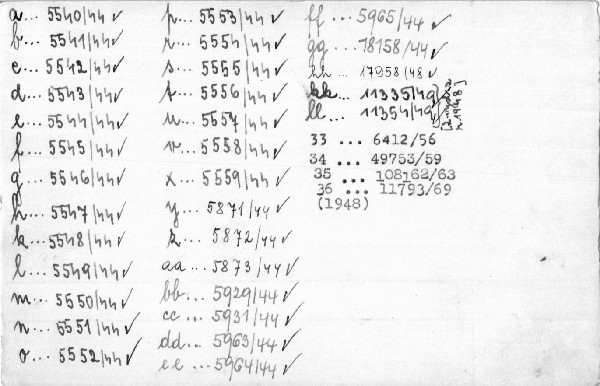 a... 5540/44 ✓
b... 5541/44 ✓
c... 5542/44 ✓
d... 5543/44 ✓
e... 5544/44 ✓
f... 5545/44 ✓
g... 5546/44 ✓
h... 5547/44 ✓
k... 5548/44 ✓
l... 5549/44 ✓
m... 5550/44 ✓
n... 5551/44 ✓
o... 5552/44 ✓
p... 5553/44 ✓
r... 5554/44 ✓
s... 5555/44 ✓
t... 5556/44 ✓
u... 5557/44 ✓
v... 5558/44 ✓
x... 5559/44 ✓
y... 5871/44 ✓
z... 5872/44 ✓
aa... 5873/44 ✓
bb... 5929/44 ✓
cc... 5931/44 ✓
dd... 5963/44 ✓
ee... 5964/44 ✓
ff... 5965/44 ✓
gg... 18158/44 ✓
hh... 17958/48 ✓
kk... 11335/49
ll... 11354/49
r. 1948)
33 ... 6412/56
34 ... 49753/59
35 ... 108162/63
36 ... 11793/69
(1948)